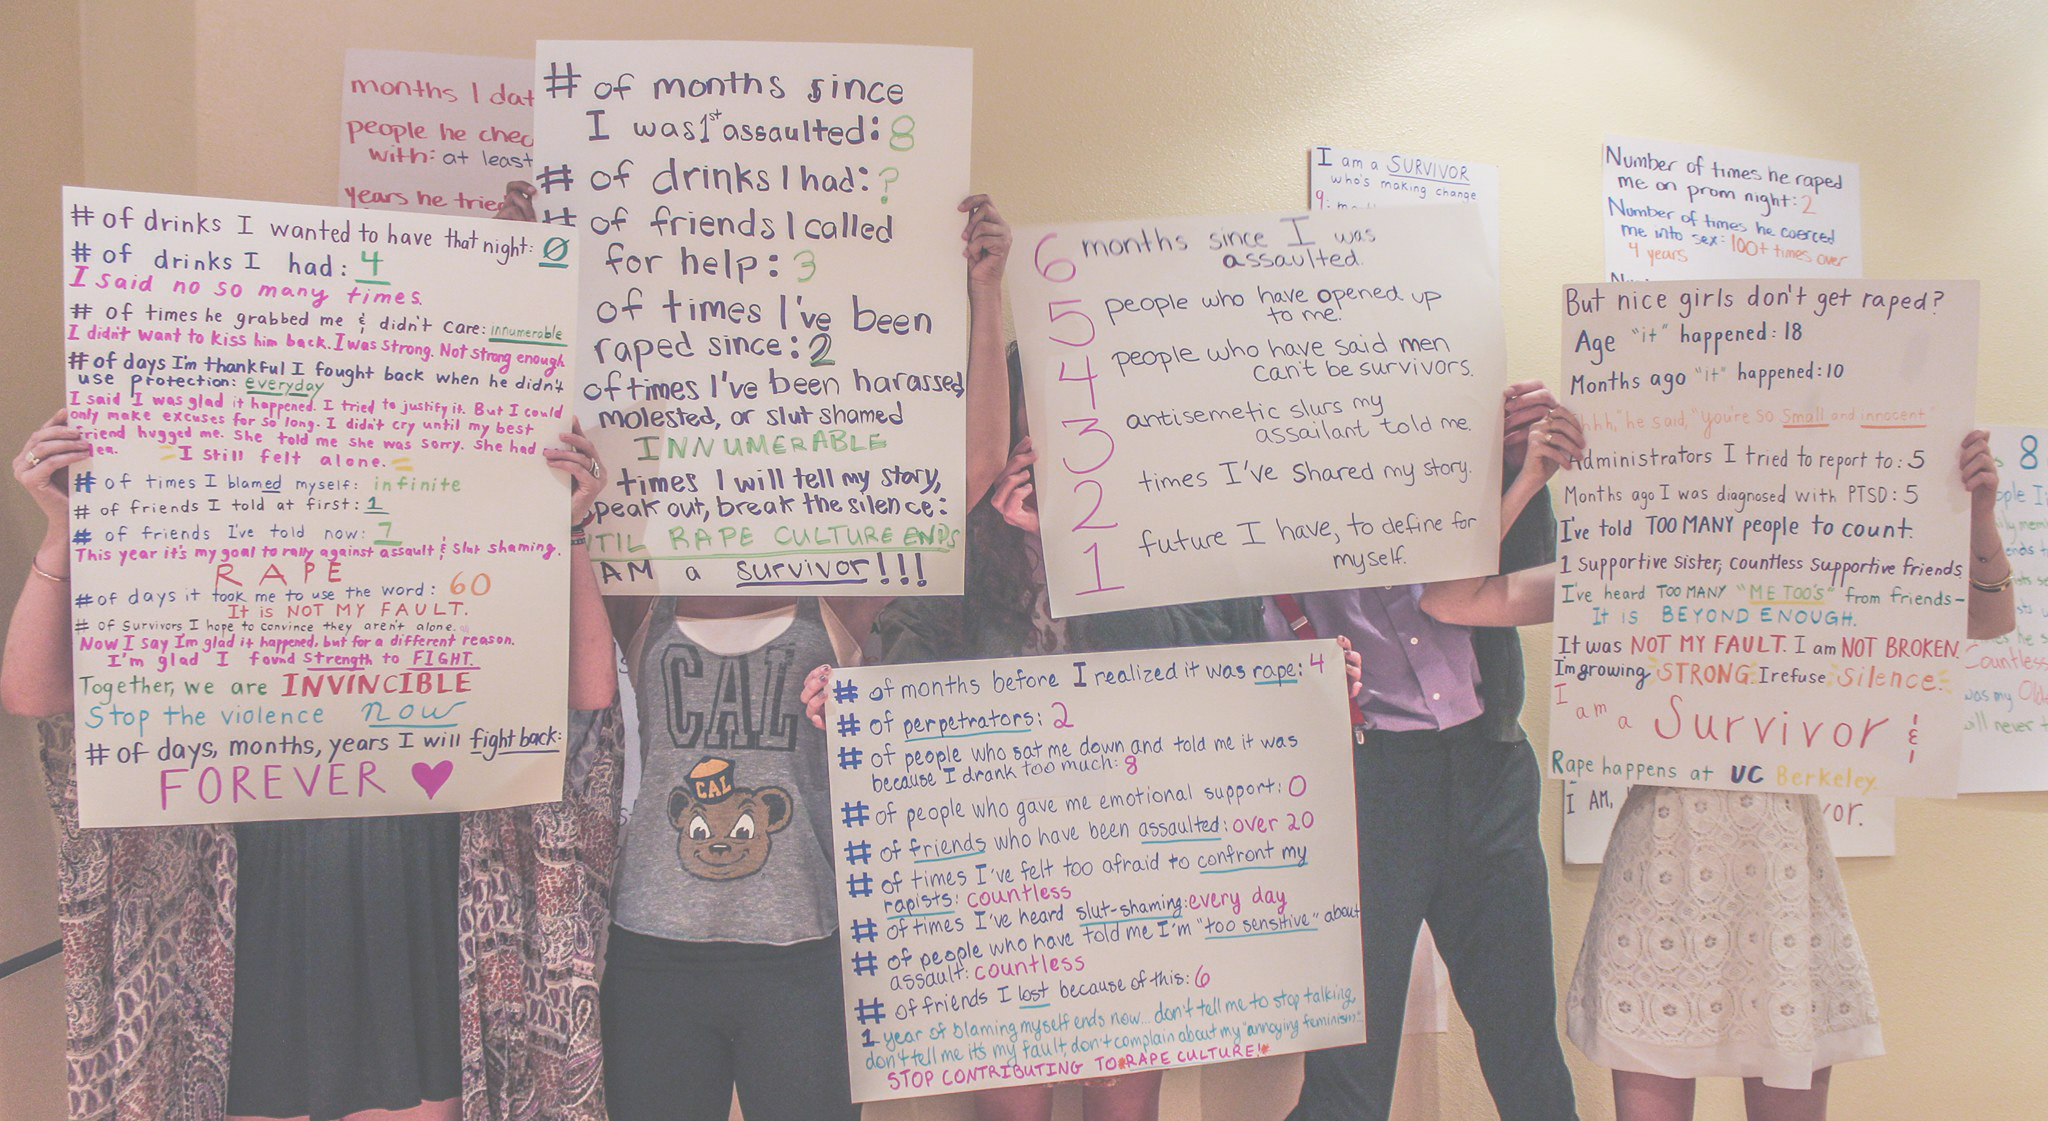 # of drinks I wanted to have that night: 0
# of drinks I had: 4
I said no so many times.
# of times he grabbed me & didn't care: innumerable
I didn't want to kiss him back. I was strong. Not strong enough
# of days I'm thankful I fought back when he didn't
use protection: everyday
I said I was glad it happened. I tried to justify it. But I could
only make excuses for so long. I didn't cry until my best
friend hugged me. She told me she was sorry. She had
I still felt alone.
# of times I blamed myself: infinite
# of friends I told at first: 1
# of friends I've told now: 7
This year it's my goal to rally against assault & slut shaming.
RAPE
# of days it took me to use the word: 60
It is NOT MY FAULT.
# of survivors I hope to convince they aren't alone.
Now I say I'm glad it happened, but for a different reason.
I'm glad I found strength to FIGHT.
Together, we are INVINCIBLE
Stop the violence now
# of days, months, years I will fight back:
FOREVER ♥
months I dat
people he chec
with: at least
years he tried
# of months since
I was 1st assaulted: 8
# of drinks I had: ?
# of friends I called
for help: 3
of times I've been
raped since: 2
of times I've been harassed,
molested, or slut shamed
INNUMERABLE
times I will tell my story,
peak out, break the silence:
TIL RAPE CULTURE ENDS
AM a survivor!!!
CAL
CAL
6 months since I was
assaulted.
5 people who have opened up
to me.
4 people who have said men
can't be survivors.
3 antisemetic slurs my
assailant told me.
2 times I've shared my story.
1 future I have, to define for
myself.
# of months before I realized it was rape: 4
# of perpetrators: 2
# of people who sat me down and told me it was
because I drank too much: 8
# of people who gave me emotional support: 0
# of friends who have been assaulted: over 20
# of times I've felt too afraid to confront my
rapists: countless
# of times I've heard slut-shaming: every day
# of people who have told me I'm "too sensitive" about
assault: countless
# of friends I lost because of this: 6
1 year of blaming myself ends now... don't tell me to stop talking,
don't tell me it's my fault, don't complain about my "annoying feminism"
STOP CONTRIBUTING TO RAPE CULTURE!
I am a SURVIVOR
who's making change
9:
Number of times he raped
me on prom night: 2
Number of times he coerced
me into sex: 100+ times over
4 years
But nice girls don't get raped?
Age "it" happened: 18
Months ago "it" happened: 10
hhh," he said, "you're so small and innocent"
Administrators I tried to report to: 5
Months ago I was diagnosed with PTSD: 5
I've told TOO MANY people to count.
1 supportive sister, countless supportive friends
I've heard TOO MANY "ME TOO'S" from friends-
It is BEYOND ENOUGH.
It was NOT MY FAULT. I am NOT BROKEN.
I'm growing STRONG. I refuse Silence.
I am a Survivor !&!
Rape happens at UC Berkeley.
I AM,
vor.
8
ople I
Countless
was my Old
ll never t